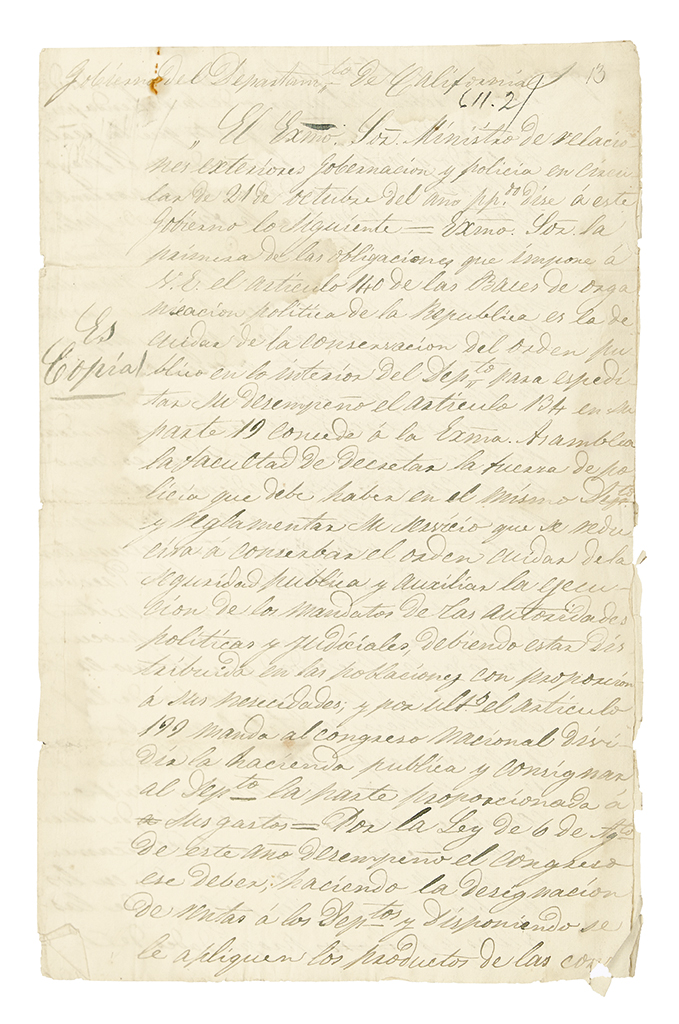 Gobierno del Departamto. de California 13
611.2
„ El Exmo. Sor. Ministro de relacio-
nes exteriores gobernacion y policia en circu
lar de 21 de octubre del año pp.do dise á este
gobierno lo siguiente = Exmo. Sor. la
primera de las obligaciones que impone á
V. E. el articulo 140 de las Baces de orga
nisacion politica de la Republica es la de
cuidar de la conservacion del orden pu
blico en lo interior del Depto. para espedi
tar su desempeño el articulo 134 en su
parte 19 conceda á la Exma. Asamblea
la facultad de decretar la fuersa de po
licia que debe haber en el mismo Depto.
y reglamentar su servicio que se redu
cira á conserbar el orden cuidar de la
seguridad publica y auxiliar la ejecu-
cion de los mandatos de las autoridades
politicas y judiciales, debiendo estar dis
tribuida en las poblaciones con proporcion
á sus nesecidades; y por ult.o el articulo
199 manda al congreso nacional divi-
dir la hacienda publica y consignar
al Depto. la parte proporcionada á
sus gastos = Por la Ley de 6 de Agto.
de este año desempeño el congreso
ese deber, haciendo la designacion
de rentas á los Deptos. y disponiendo se
le apliquen los productos de las con
Es
Copia